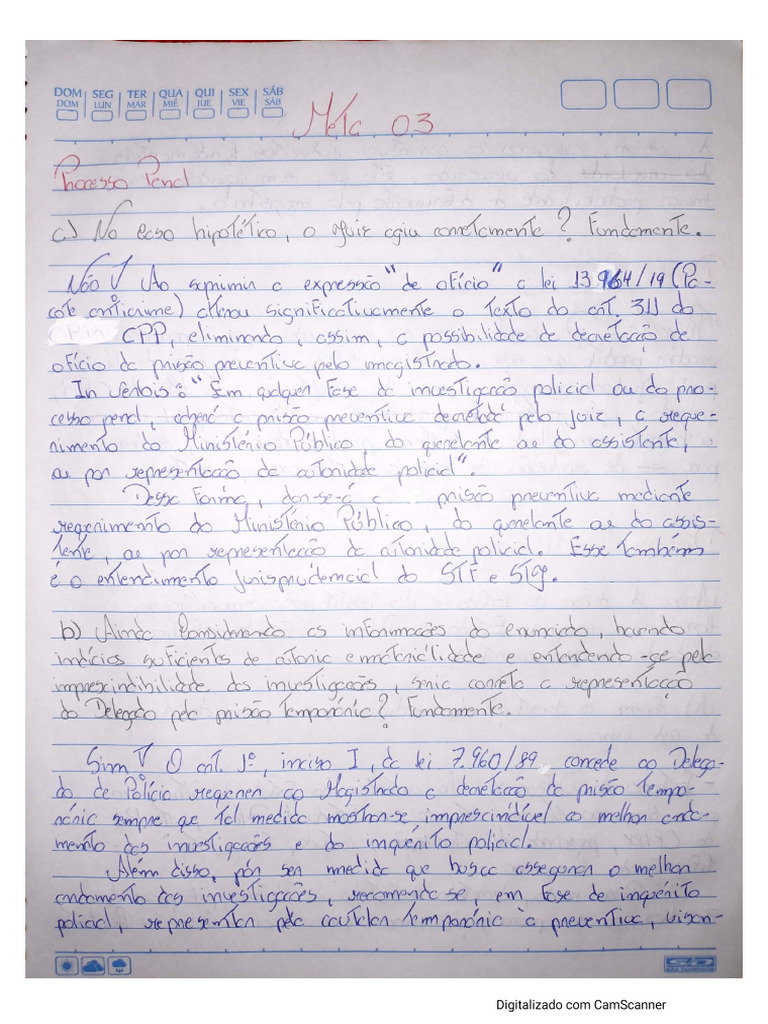 DOM SEG TER QUA QUI SEX SÁB
DOM LUN MAR MIÉ JUE VIE SAB
Meta 03
Processo Penal
a) No caso hipotético, o Juiz agiu corretamente? Fundamente.
Não V Ao suprimir a expressão "de ofício" a lei 13.964/19 (Pa-
cote anticrime) alterou significativamente o texto do art. 311 do
CPP, eliminando, assim, a possibilidade de decretação de
ofício da prisão preventiva pelo magistrado.
In Verbis: "Em qualquer fase da investigação policial ou do pro-
cesso penal, caberá a prisão preventiva decretada pelo juiz, a reque-
rimento do Ministério Público, do querelante ou do assistente,
ou por representação da autoridade policial".
Dessa Forma, dar-se-á a prisão preventiva mediante
requerimento do Ministério Público, do querelante ou do assis-
tente, ou por representação da autoridade policial. Esse também
é o entendimento jurisprudencial do STF e STJ.
b) Ainda Considerando as informações do enunciado, havendo
indícios suficientes de autoria e materialidade e entendendo-se pela
imprescindibilidade das investigações, seria correta a representação
do Delegado pela prisão Temporária? Fundamente.
Sim V O art. 1º, inciso I, da lei 7.960/89 concede ao Delega-
do de Polícia requerer ao Magistrado a decretação da prisão tempo-
rária sempre que tal medida mostrar-se imprescindível ao melhor anda-
mento das investigações e do inquérito policial.
Além disso, pór ser medida que busca assegurar o melhor
andamento das investigações, recomenda-se, em fase de inquérito
policial, representar pela cautelar temporária à preventiva, visan-
SÃO DOMINGOS
Digitalizado com CamScanner